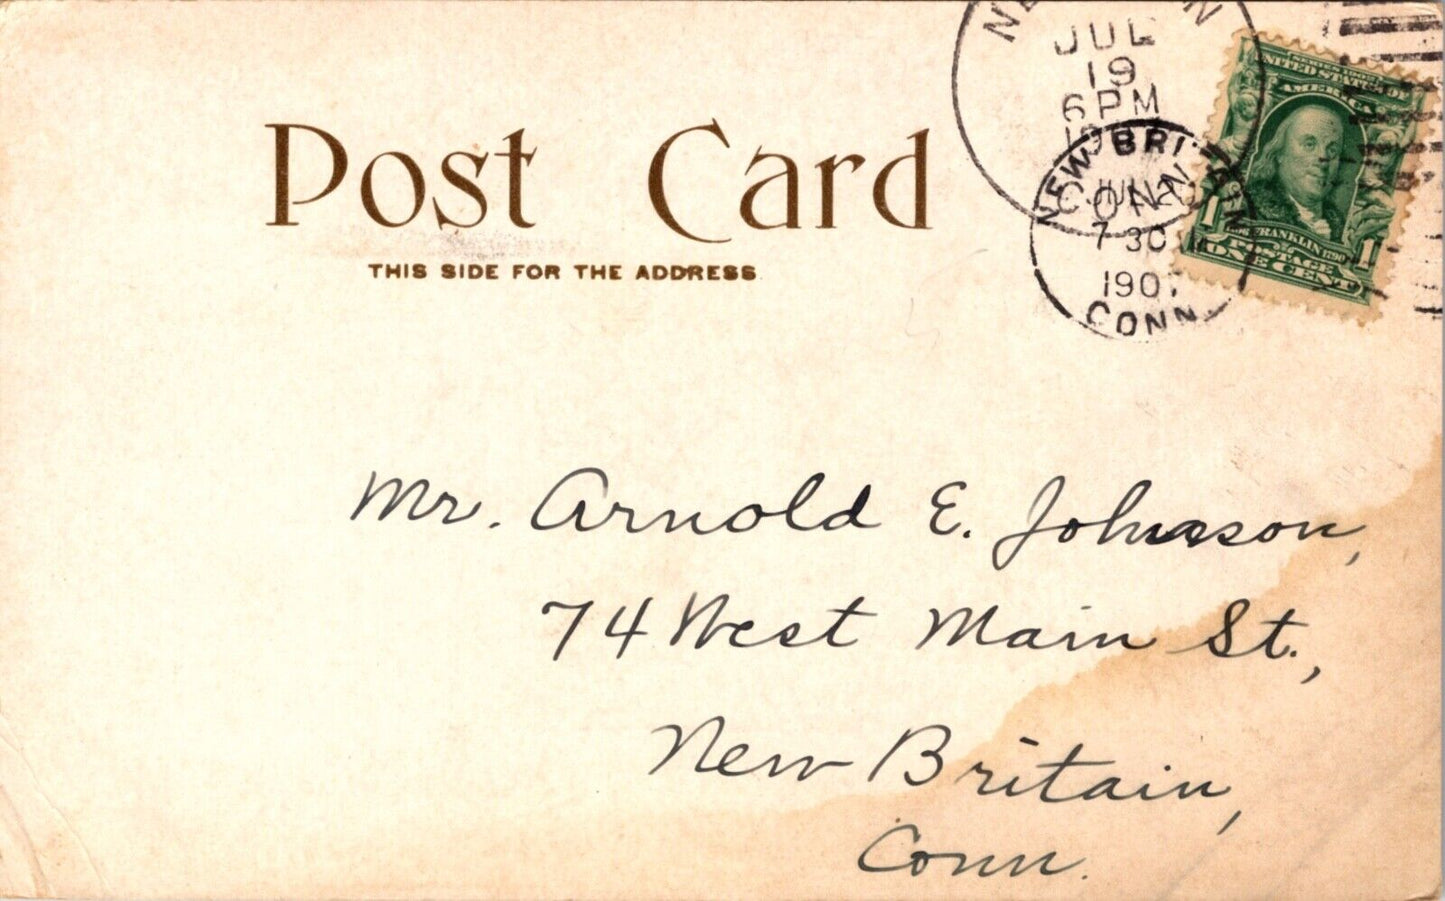 Post Card
THIS SIDE FOR THE ADDRESS
JUL
19
6 PM
NEW BRITAIN
CONN
7 30
1907
CONN
SERIES 1902
UNITED STATES OF
AMERICA
1 FRANKLIN 1790 1
POSTAGE
ONE CENT
Mr. Arnold E. Johnson,
74 West Main St.,
New Britain,
Conn.